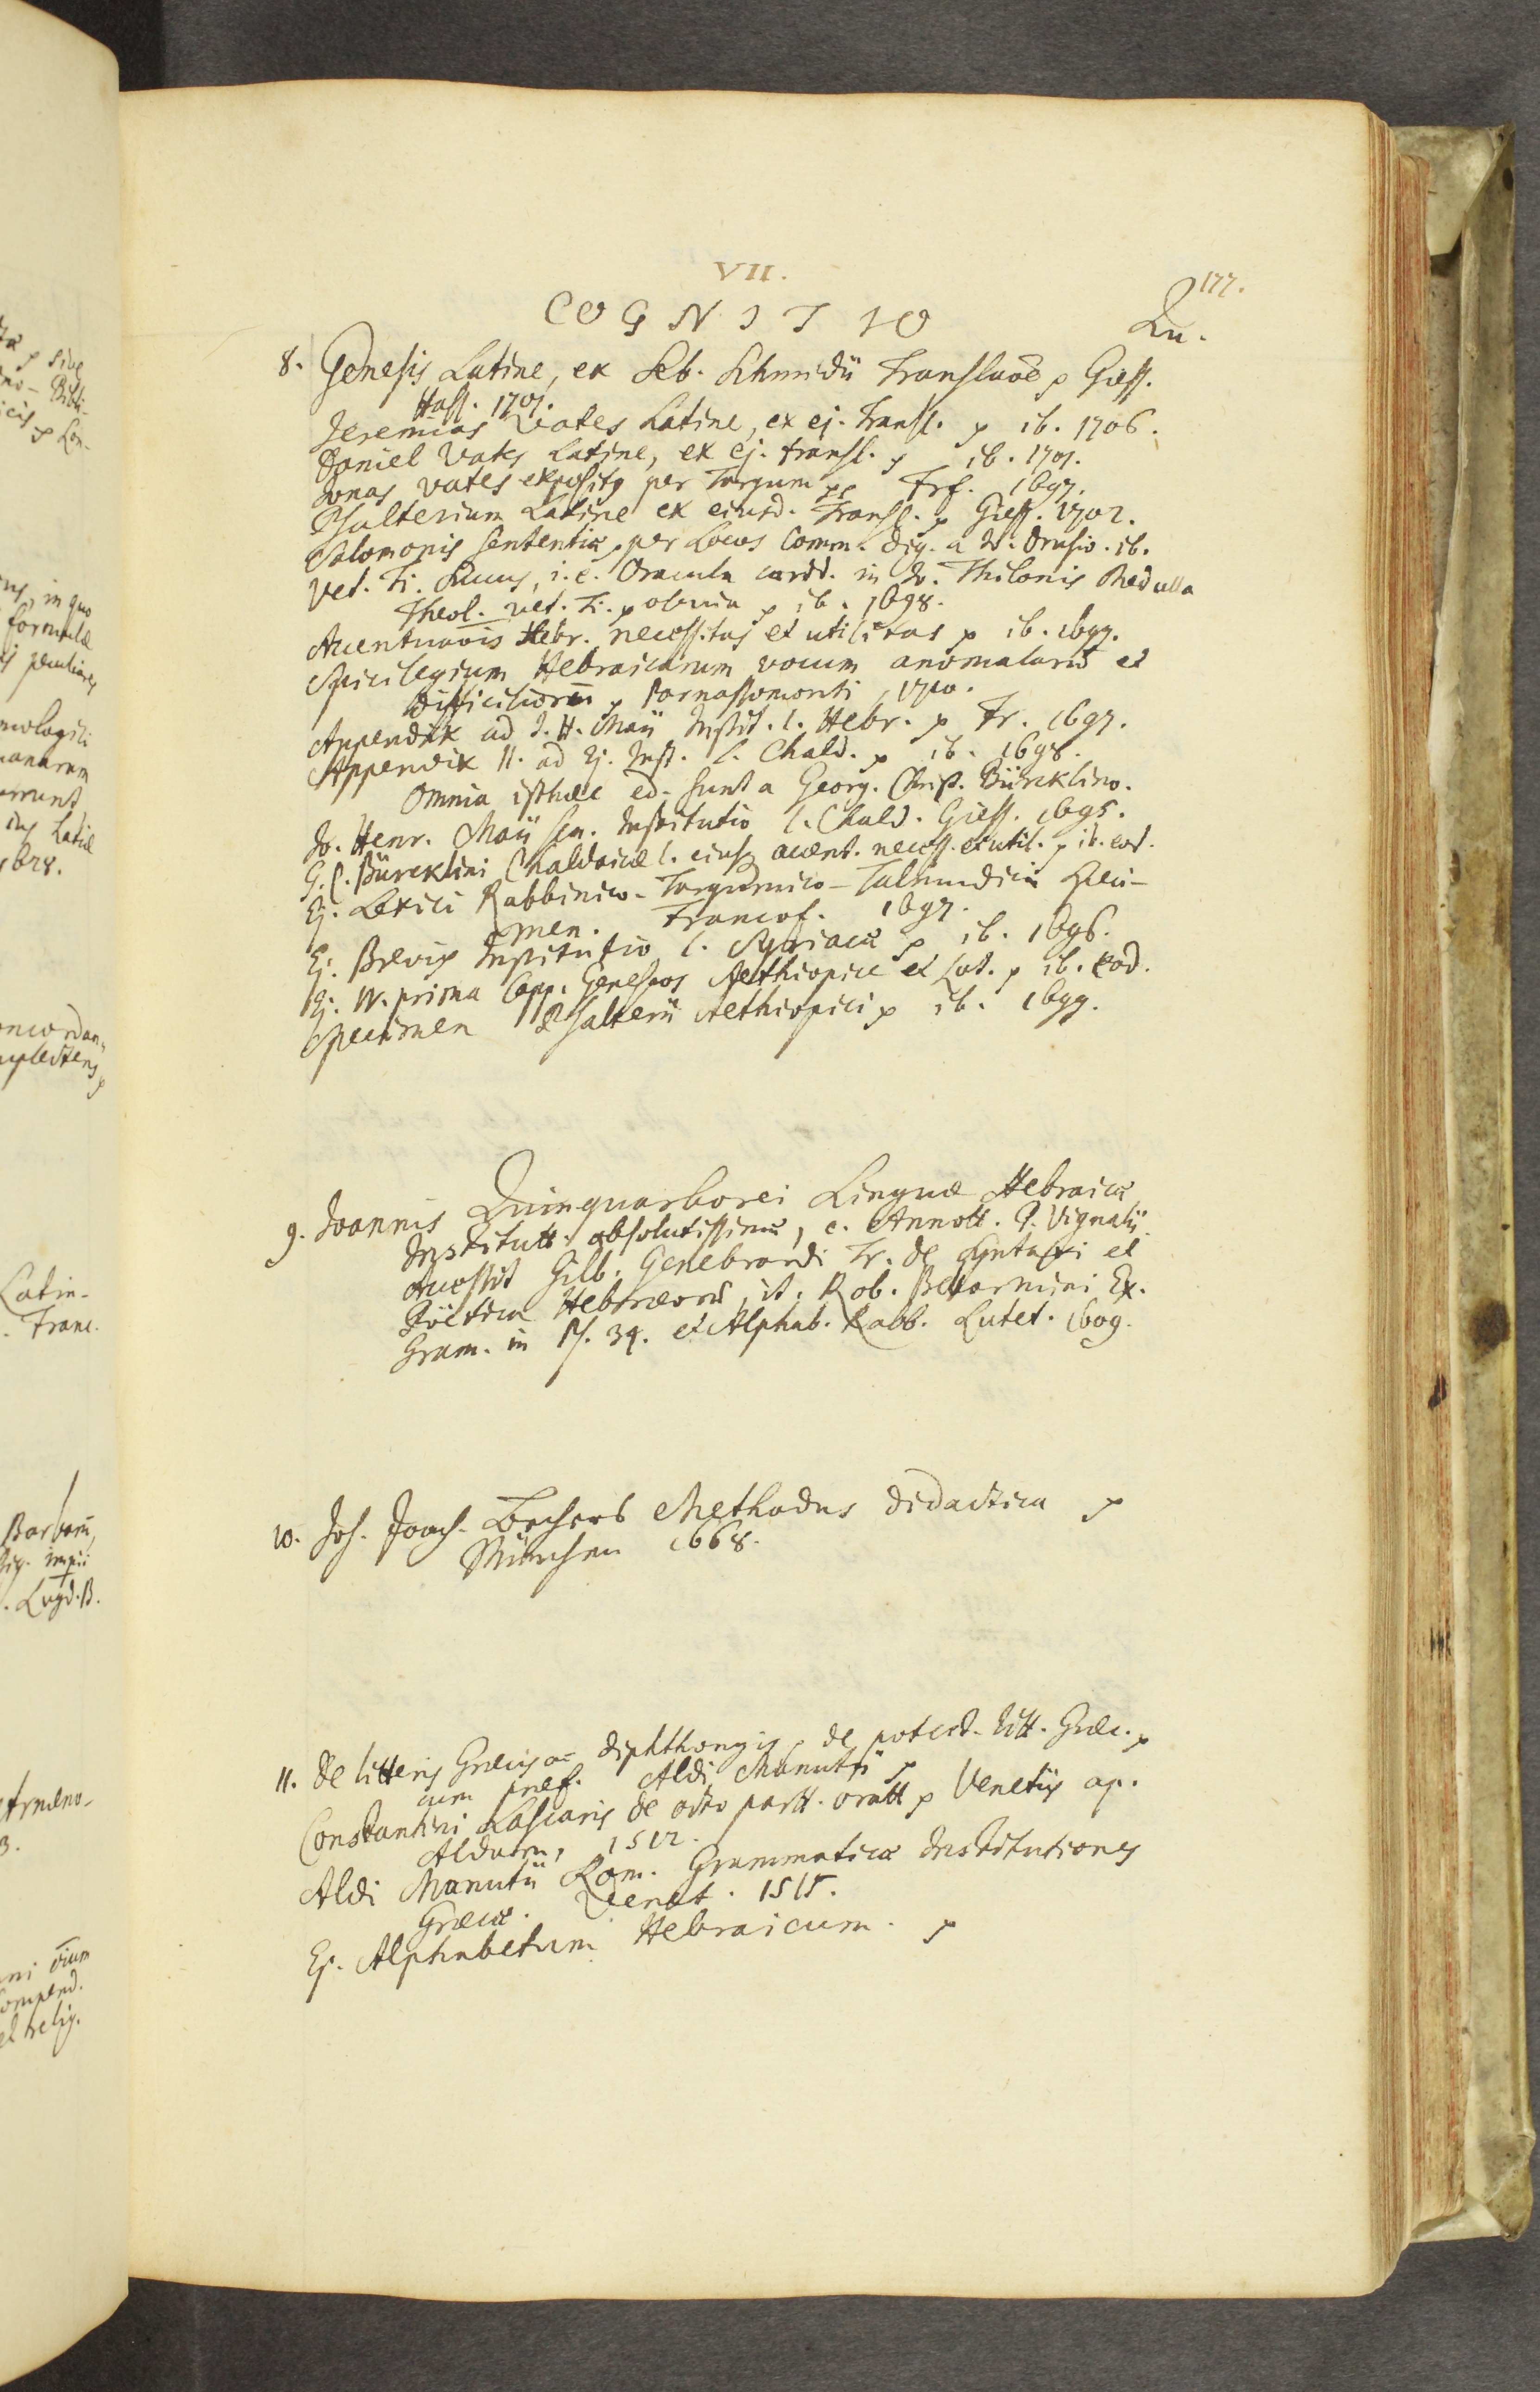 VII.
177.
COGNITIO
Qu.
8. Genesis Latine, ex Seb. Schmidii Translaõe p Giess.
Hass. 1707.
Jeremias Vates Latine, ex ej. Transl. p ib. 1706.
Daniel Vates Latine, ex ej. transl. p ib. 1707.
Jonas vates expositq per Targum pp Frf. 1697.
Psalterium Latine ex eiusd. Transl. p Giess. 1702.
Salomonis sententiæ, per Locos Comm. dig. a J. Drusio. ib.
Vet. Ti. Succus, i. e. Oracula cardd. in Jo. Thilonis Medulla
Theol. vet. Ti. p obvia p ib. 1698.
Accentuaõis Hebr. necessitas et utilitas p ib. 1697.
Spicilegium Hebraicarum vocum anomalarũ et
difficiliorũ p Parnassomonti, 1700.
Appendix ad J. H. Maii Instit. l. Hebr. p Fr. 1697.
Appendix II. ad Ej. Inst. l. Chald. p ib. 1698.
Omnia isthæc ed. sunt a Georg. Christ. Bürcklino.
Jo. Henr. Maii sen. Institutio l. Chald. Giess. 1695.
G. C. Bürcklini Chaldaicæ l. eiusq accent. necess. et util. p ib. eod.
Ej. Lexici Rabbinico-Targumico-Talmudici Speci-
men. Francof. 1697.
Ej. Brevis Institutio l. Syriacæ p ib. 1696.
Ej. IV. prima Capp. Geneseos Aethiopice et Lat. p ib. eod.
Specimen Psalterii Aethiopici p ib. 1699.
9. Joannis Quinquarborei Linguæ Hebraicæ
Institutt. absolutissimæ, c. Annott. P. Vignalii.
Accessit Gilb. Genebrardi Tr. de Syntaxi et
Poëtica Hebræorũ, it. Rob. Bellarmini Ex.
Gram. in Ps. 34. et Alphab. Rabb. Lutet. 1609.
10. Joh. Joach. Bechers Methodus didactica p
München 1668.
11. De litteris Græcis ac diphthongis, de potest. litt. Græc. p
cum præf. Aldi Manutii p
Constantini Lascaris de octo partt. oratt p Venetiis ap.
Aldum, 1512.
Aldi Manutii Rom. Grammaticæ Institutiones
Græcæ. Venet. 1515.
Ej. Alphabetum Hebraicum. p